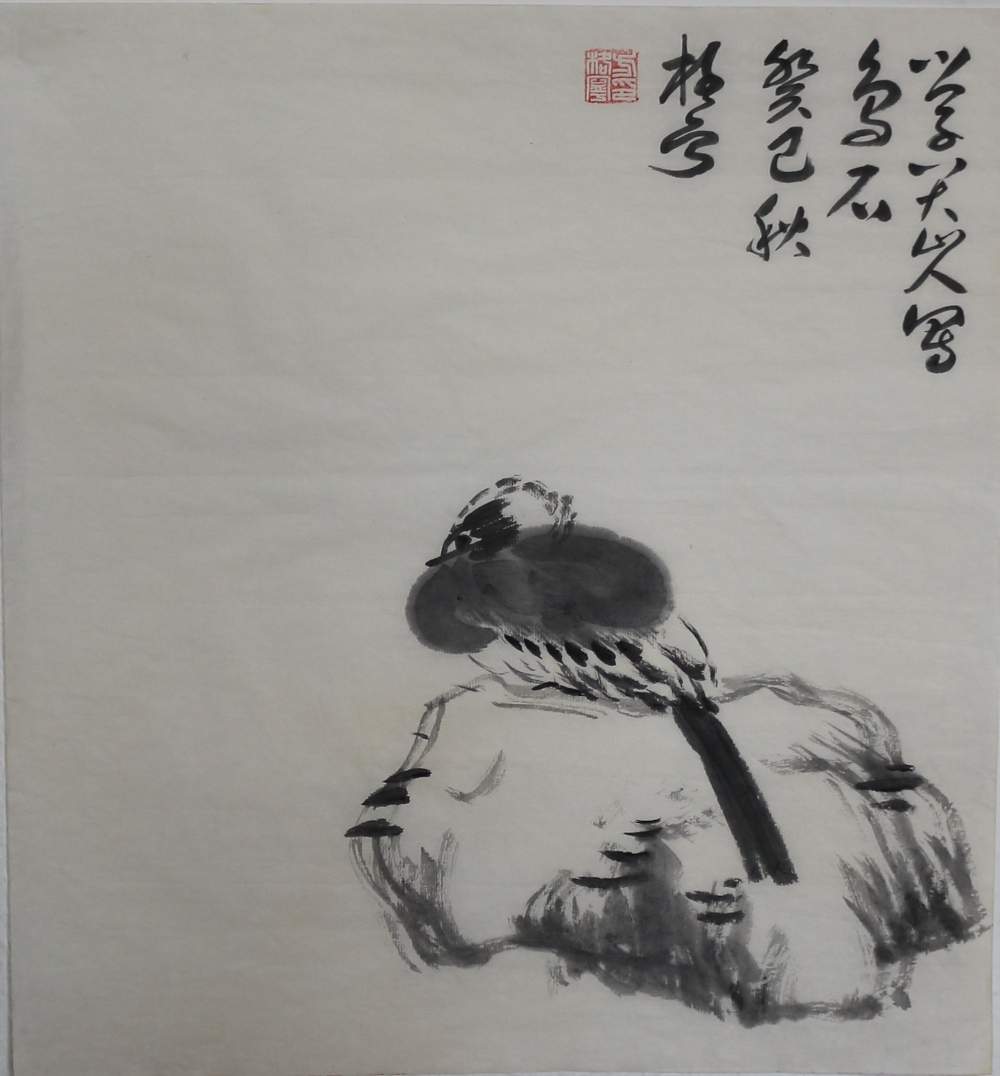 学八大山人写
鸟石
癸巳秋